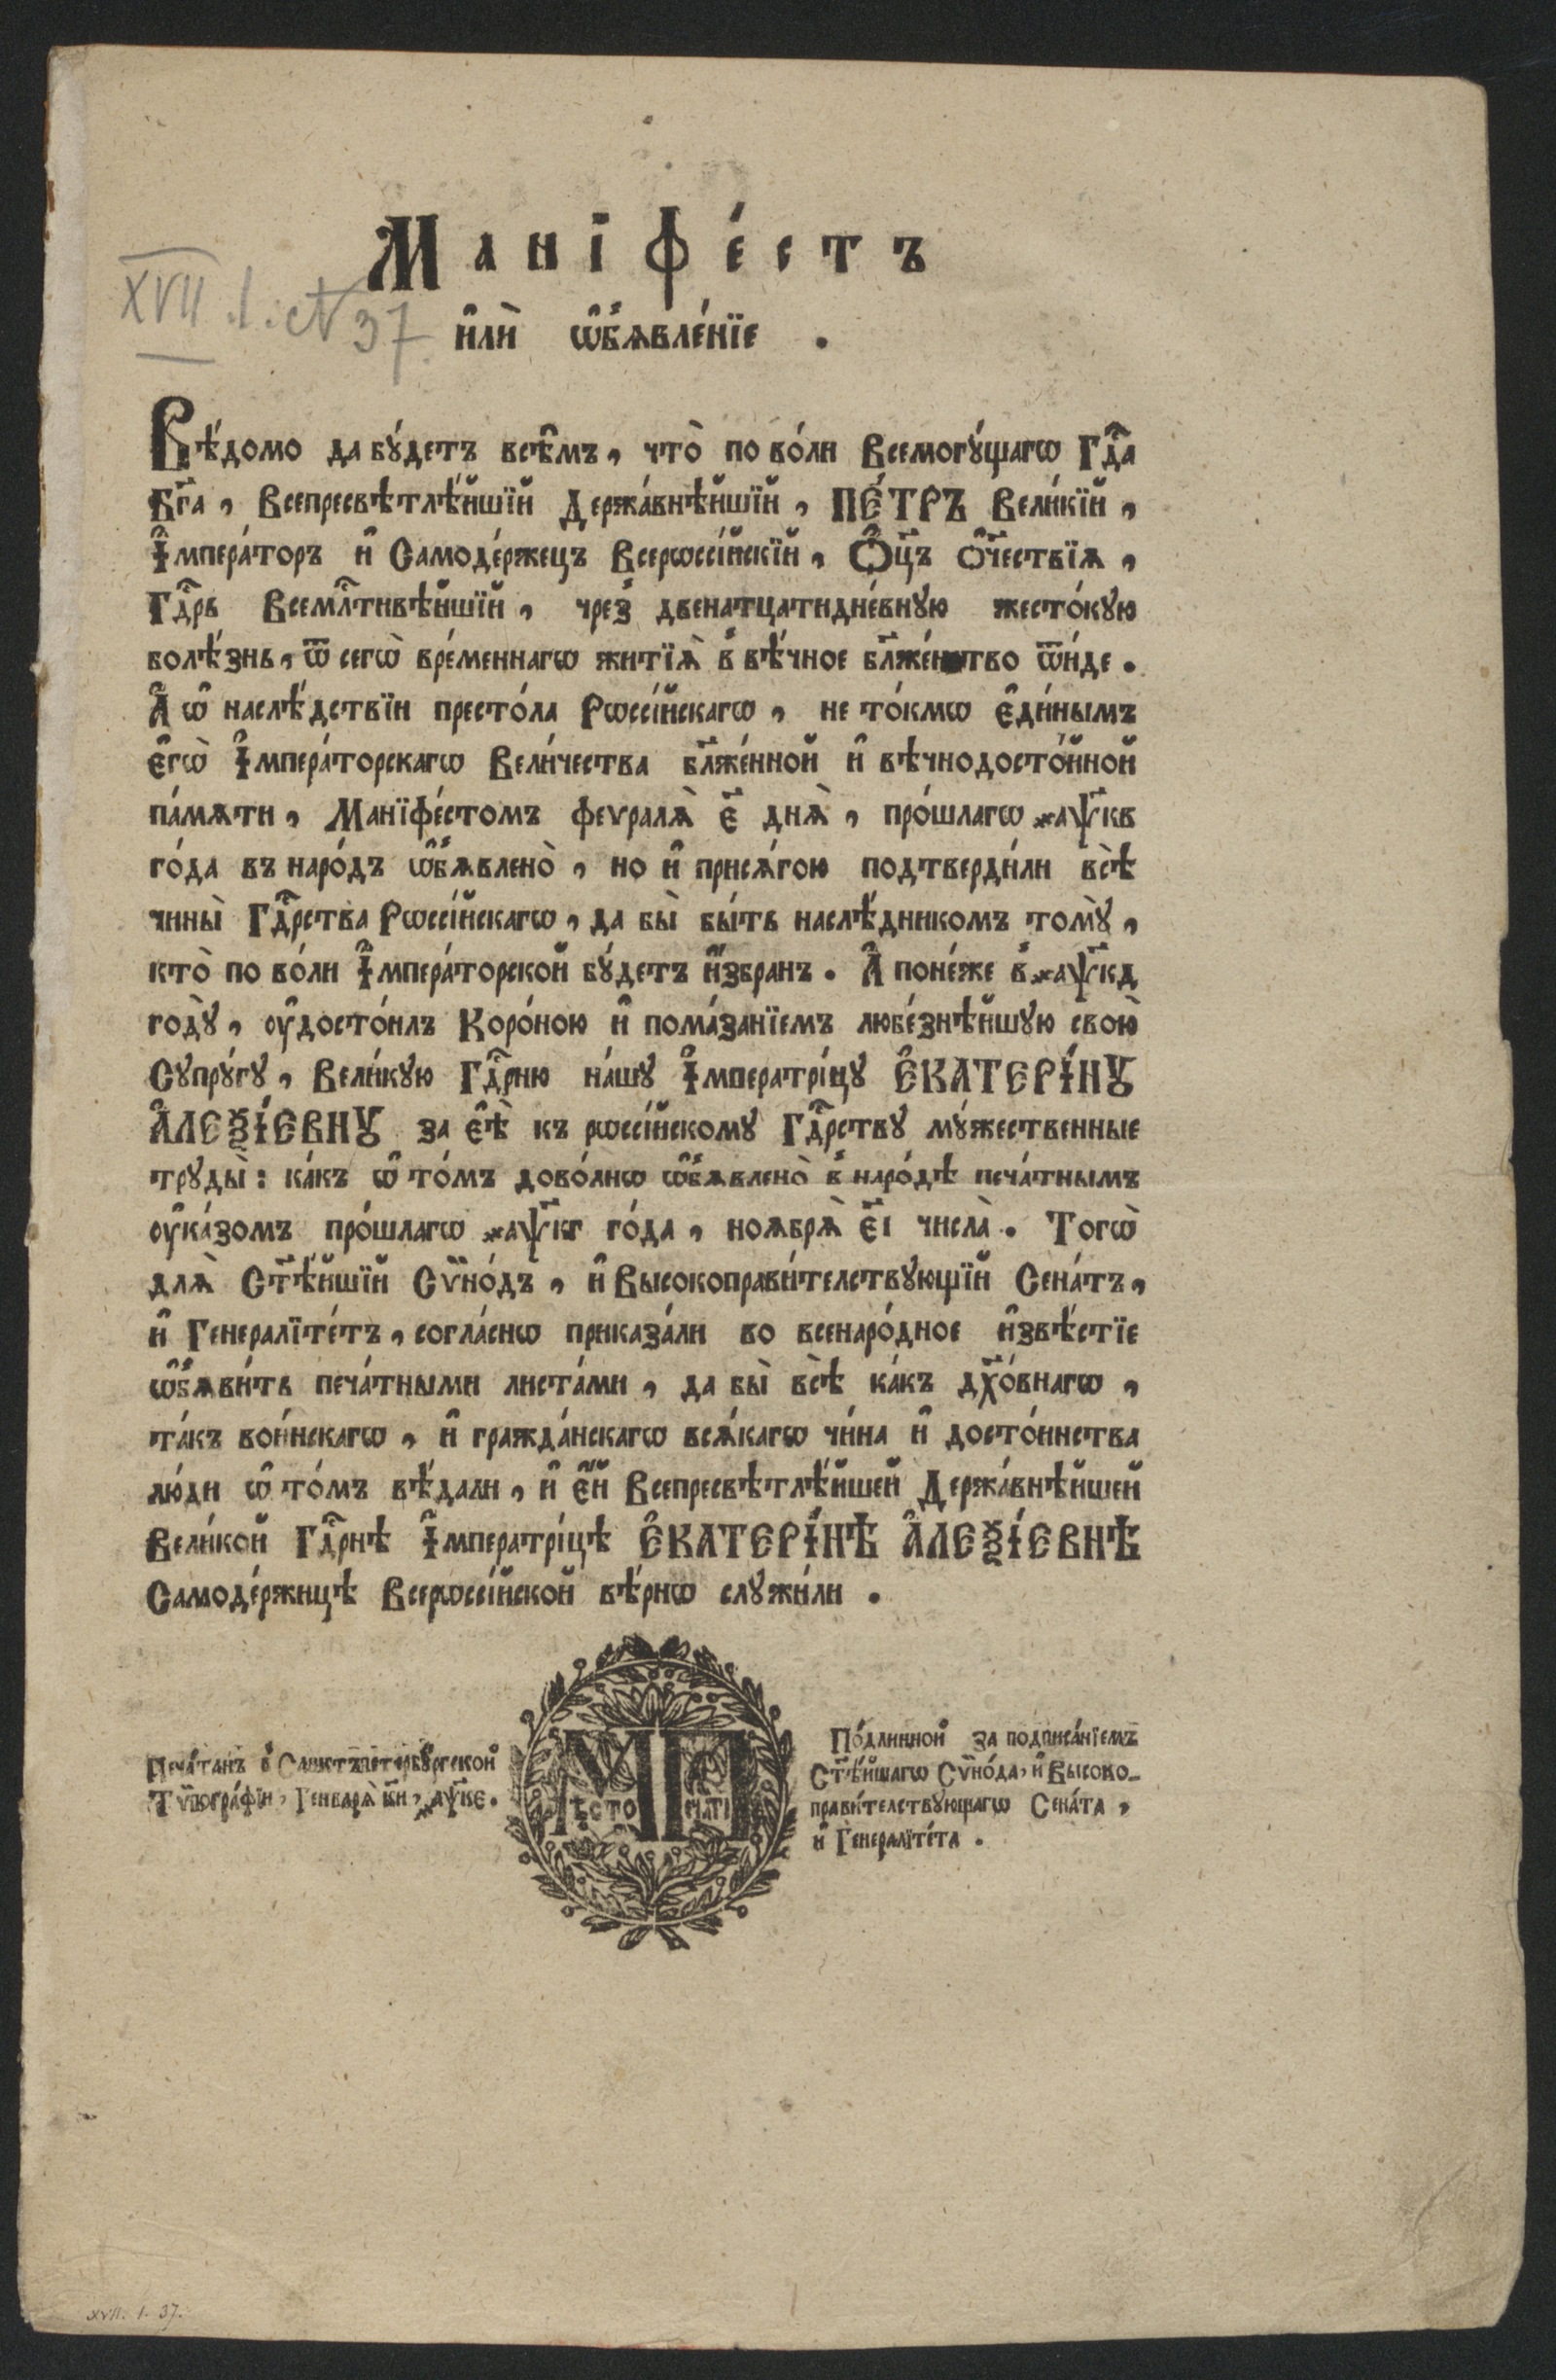 Маніфе́стъ
XVII. 1. N 37
и҆лѝ ѡ҆б̾ѧвле́нїе .
Вѣ́домо да бꙋ́детъ всѣ̑мъ, что̀ по во́ли Всемогꙋ́щагѡ Гдⷭ҇а
Бг҃а, Всепресвѣтлѣ́йшїй Держа́внѣйшїй, ПЕ́ТРЪ Вели́кїй,
І҆мпера́торъ и҆ Самоде́ржецъ Всерѡссі́йскїй, Ѻ҆ц҃ъ ѻ҆ч҃ествїѧ,
Гдⷭ҇рь Всемлⷭ҇тивѣйшїй, чрез̾ двенатцатидне́внꙋю жесто́кꙋю
болѣ́знь, ѿ сегѡ̀ вре́меннагѡ житїѧ̀ в̾ вѣ́чное бл҃же́нство ѿи́де.
А҆ ѡ҆ наслѣ́дствїи престо́ла Рѡссі́йскагѡ, не то́кмѡ є҆ди́нымъ
є҆гѡ̀ І҆мпера́торскагѡ Вели́чества бл҃же́нной и҆ вѣчнодосто́йной
па́мѧти, Манїфе́стомъ феѵралѧ̀ є҃ днѧ̀, про́шлагѡ ҂аѱ҃кв
го́да въ наро́дъ ѡ҆б̾ѧвлено̀, но и҆ присѧ́гою подтверди́ли всѣ̀
чины̀ Гдⷭ҇рства Рѡссі́йскагѡ, да бы̀ бы́ть наслѣ́дникомъ томꙋ̀,
кто̀ по во́ли І҆мпера́торской бꙋ́детъ и҆́збранъ. А҆ поне́же в̾ ҂аѱ҃кд
годꙋ̀, ᲂу҆досто́илъ Коро́ною и҆ пома́занїемъ любе́знѣйшꙋю свою̀
Сꙋпрꙋ́гꙋ, Вели́кꙋю Гдⷭ҇рню на́шꙋ І҆мператрі́цꙋ Е҆КАТЕРІ́НꙊ
А҆ЛЕѮІ́ЕВНꙊ за є҆ѣ̀ къ рѡссі́йскомꙋ Гдⷭ҇рствꙋ мꙋ́жественные
трꙋды̀: ка́къ ѡ҆ то́мъ дово́лнѡ ѡ҆б̾ѧвлено̀ в̾ наро́дѣ печа́тнымъ
ᲂу҆ка́зомъ про́шлагѡ ҂аѱ҃кг го́да, ноѧбрѧ̀ є҃і числа̀. Тогѡ̀
длѧ̀ Ст҃ѣ́йшїй Сѵно́дъ, и҆ Высокоправи́телствꙋющїй Сена́тъ,
и҆ Генералїте́тъ, согла́снѡ приказа́ли во всенаро́дное и҆звѣ́стїе
ѡ҆б̾ѧви́ть печа́тными листа́ми, да бы̀ всѣ̀ ка́къ дх҃о́внагѡ,
та́къ вои́нскагѡ, и҆ гражда́нскагѡ всѧ́кагѡ чи́на и҆ досто́инства
лю́ди ѡ҆ то́мъ вѣ́дали, и҆ є҆́й Всепресвѣтлѣ́йшей Держа́внѣйшей
Вели́кой Гдⷭ҇рнѣ І҆мператрі́цѣ Е҆КАТЕРІ́НѢ А҆ЛЕѮІ́ЕВНѢ
Самоде́ржицѣ Всерѡссі́йской вѣ́рнѡ слꙋжи́ли.
Печа́танъ в̾ Санктъпетербꙋ́ргской
Тѷпогра́фїи, Генварѧ̀ к҃и, ҂аѱ҃ке.
МП
ѢСТО ЧА́ТІ
По́длинной за подписа́нїемъ
Ст҃ѣ́йшагѡ Сѵно́да, и҆ Высоко-
прави́телствꙋющагѡ Сена́та,
и҆ Генералїте́та.
XVII. 1. 37.